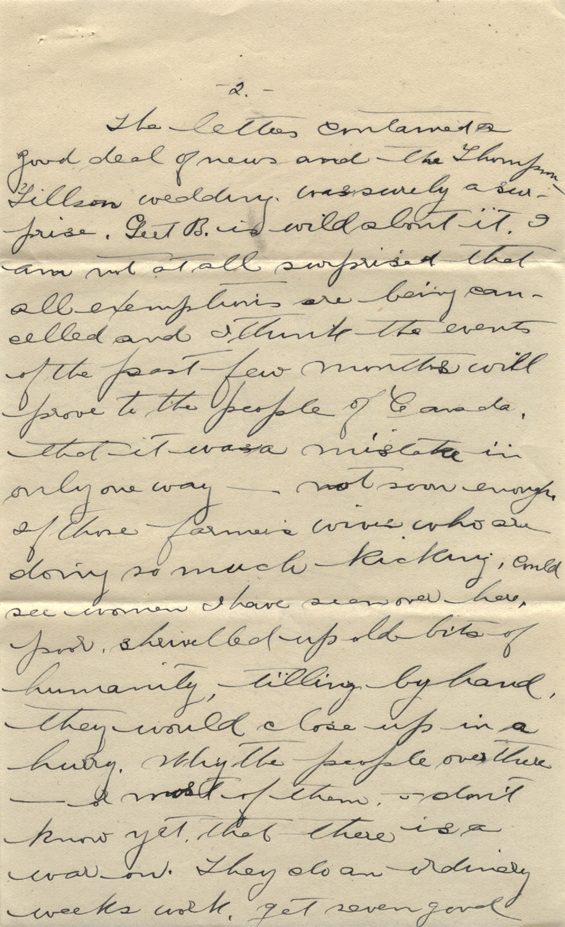 -2.-
The letters contained a
good deal of news and the Thompson
Tillson wedding was surely a sur-
prise. Gert B. is wild about it. I
am not at all surprised that
all exemptions are being can-
celled and I think the events
of the past few months will
prove to the people of Canada,
that it was a mistake in
only one way — not soon enough.
If those farmers wives who are
doing so much kicking, could
see women I have seen over here,
poor, shrivelled-up old bits of
humanity, tilling by hand,
they would close up in a
hurry. Why the people over there
— or most of them, — don't
know yet, that there is a
war on. They do an ordinary
weeks work, get seven good